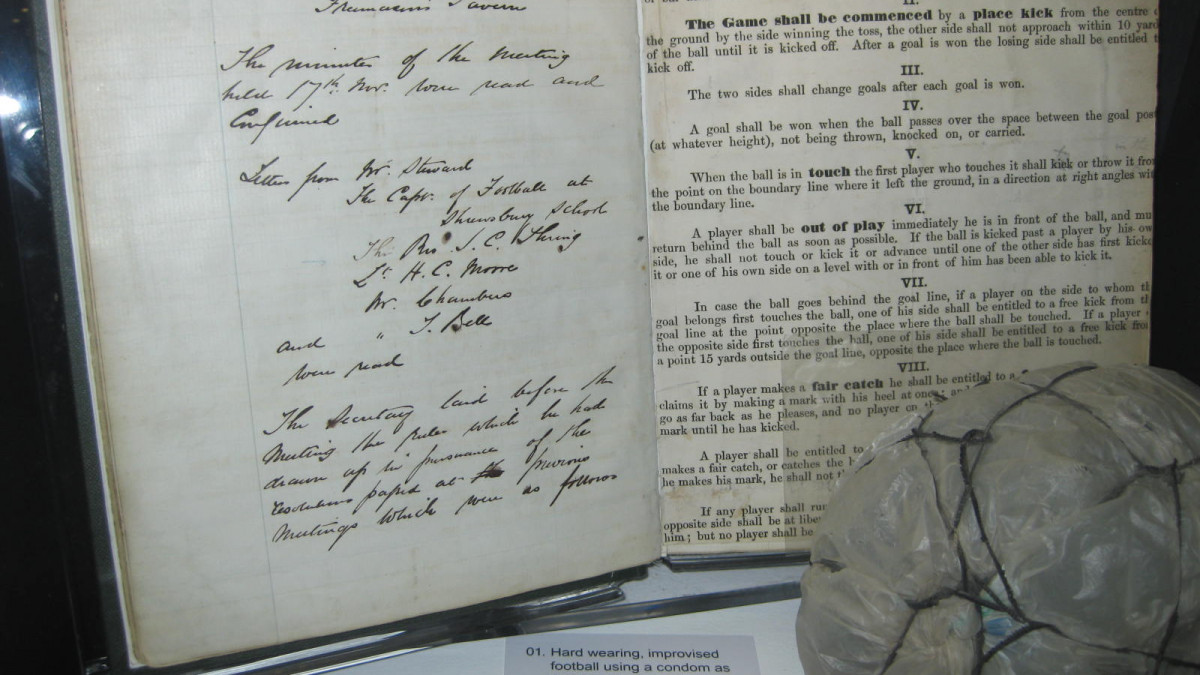 Freemason's Tavern
The minutes of the Meeting
held 17th Nov. were read and
Confirmed
Letters from Mr. Steward
The Capn. of Football at
Shrewsbury School
The Rev. J. C. Thring
Lt. H. C. Moore
Mr. Chambers
and " J. Bell
were read
The Secretary laid before the
Meeting the rules which he had
drawn up in pursuance of the
resolutions passed at the previous
Meetings which were as follows
II.
The Game shall be commenced by a place kick from the centre
the ground by the side winning the toss, the other side shall not approach within 10 yard
of the ball until it is kicked off. After a goal is won the losing side shall be entitled t
kick off.
III.
The two sides shall change goals after each goal is won.
IV.
A goal shall be won when the ball passes over the space between the goal post
(at whatever height), not being thrown, knocked on, or carried.
V.
When the ball is in touch the first player who touches it shall kick or throw it from
the point on the boundary line where it left the ground, in a direction at right angles wit
the boundary line.
VI.
A player shall be out of play immediately he is in front of the ball, and mu
return behind the ball as soon as possible. If the ball is kicked past a player by his ow
side, he shall not touch or kick it or advance until one of the other side has first kicke
it or one of his own side on a level with or in front of him has been able to kick it.
VII.
In case the ball goes behind the goal line, if a player on the side to whom th
goal belongs first touches the ball, one of his side shall be entitled to a free kick from th
goal line at the point opposite the place where the ball shall be touched. If a player
the opposite side first touches the ball, one of his side shall be entitled to a free kick from
a point 15 yards outside the goal line, opposite the place where the ball is touched.
VIII.
If a player makes a fair catch he shall be entitled to a
claims it by making a mark with his heel at once; and
go as far back as he pleases, and no player on th
mark until he has kicked.
A player shall be entitled to
makes a fair catch, or catches the b
he makes his mark, he shall not
If any player shall run
opposite side shall be at liber
him; but no player shall be
01. Hard wearing, improvised
football using a condom as